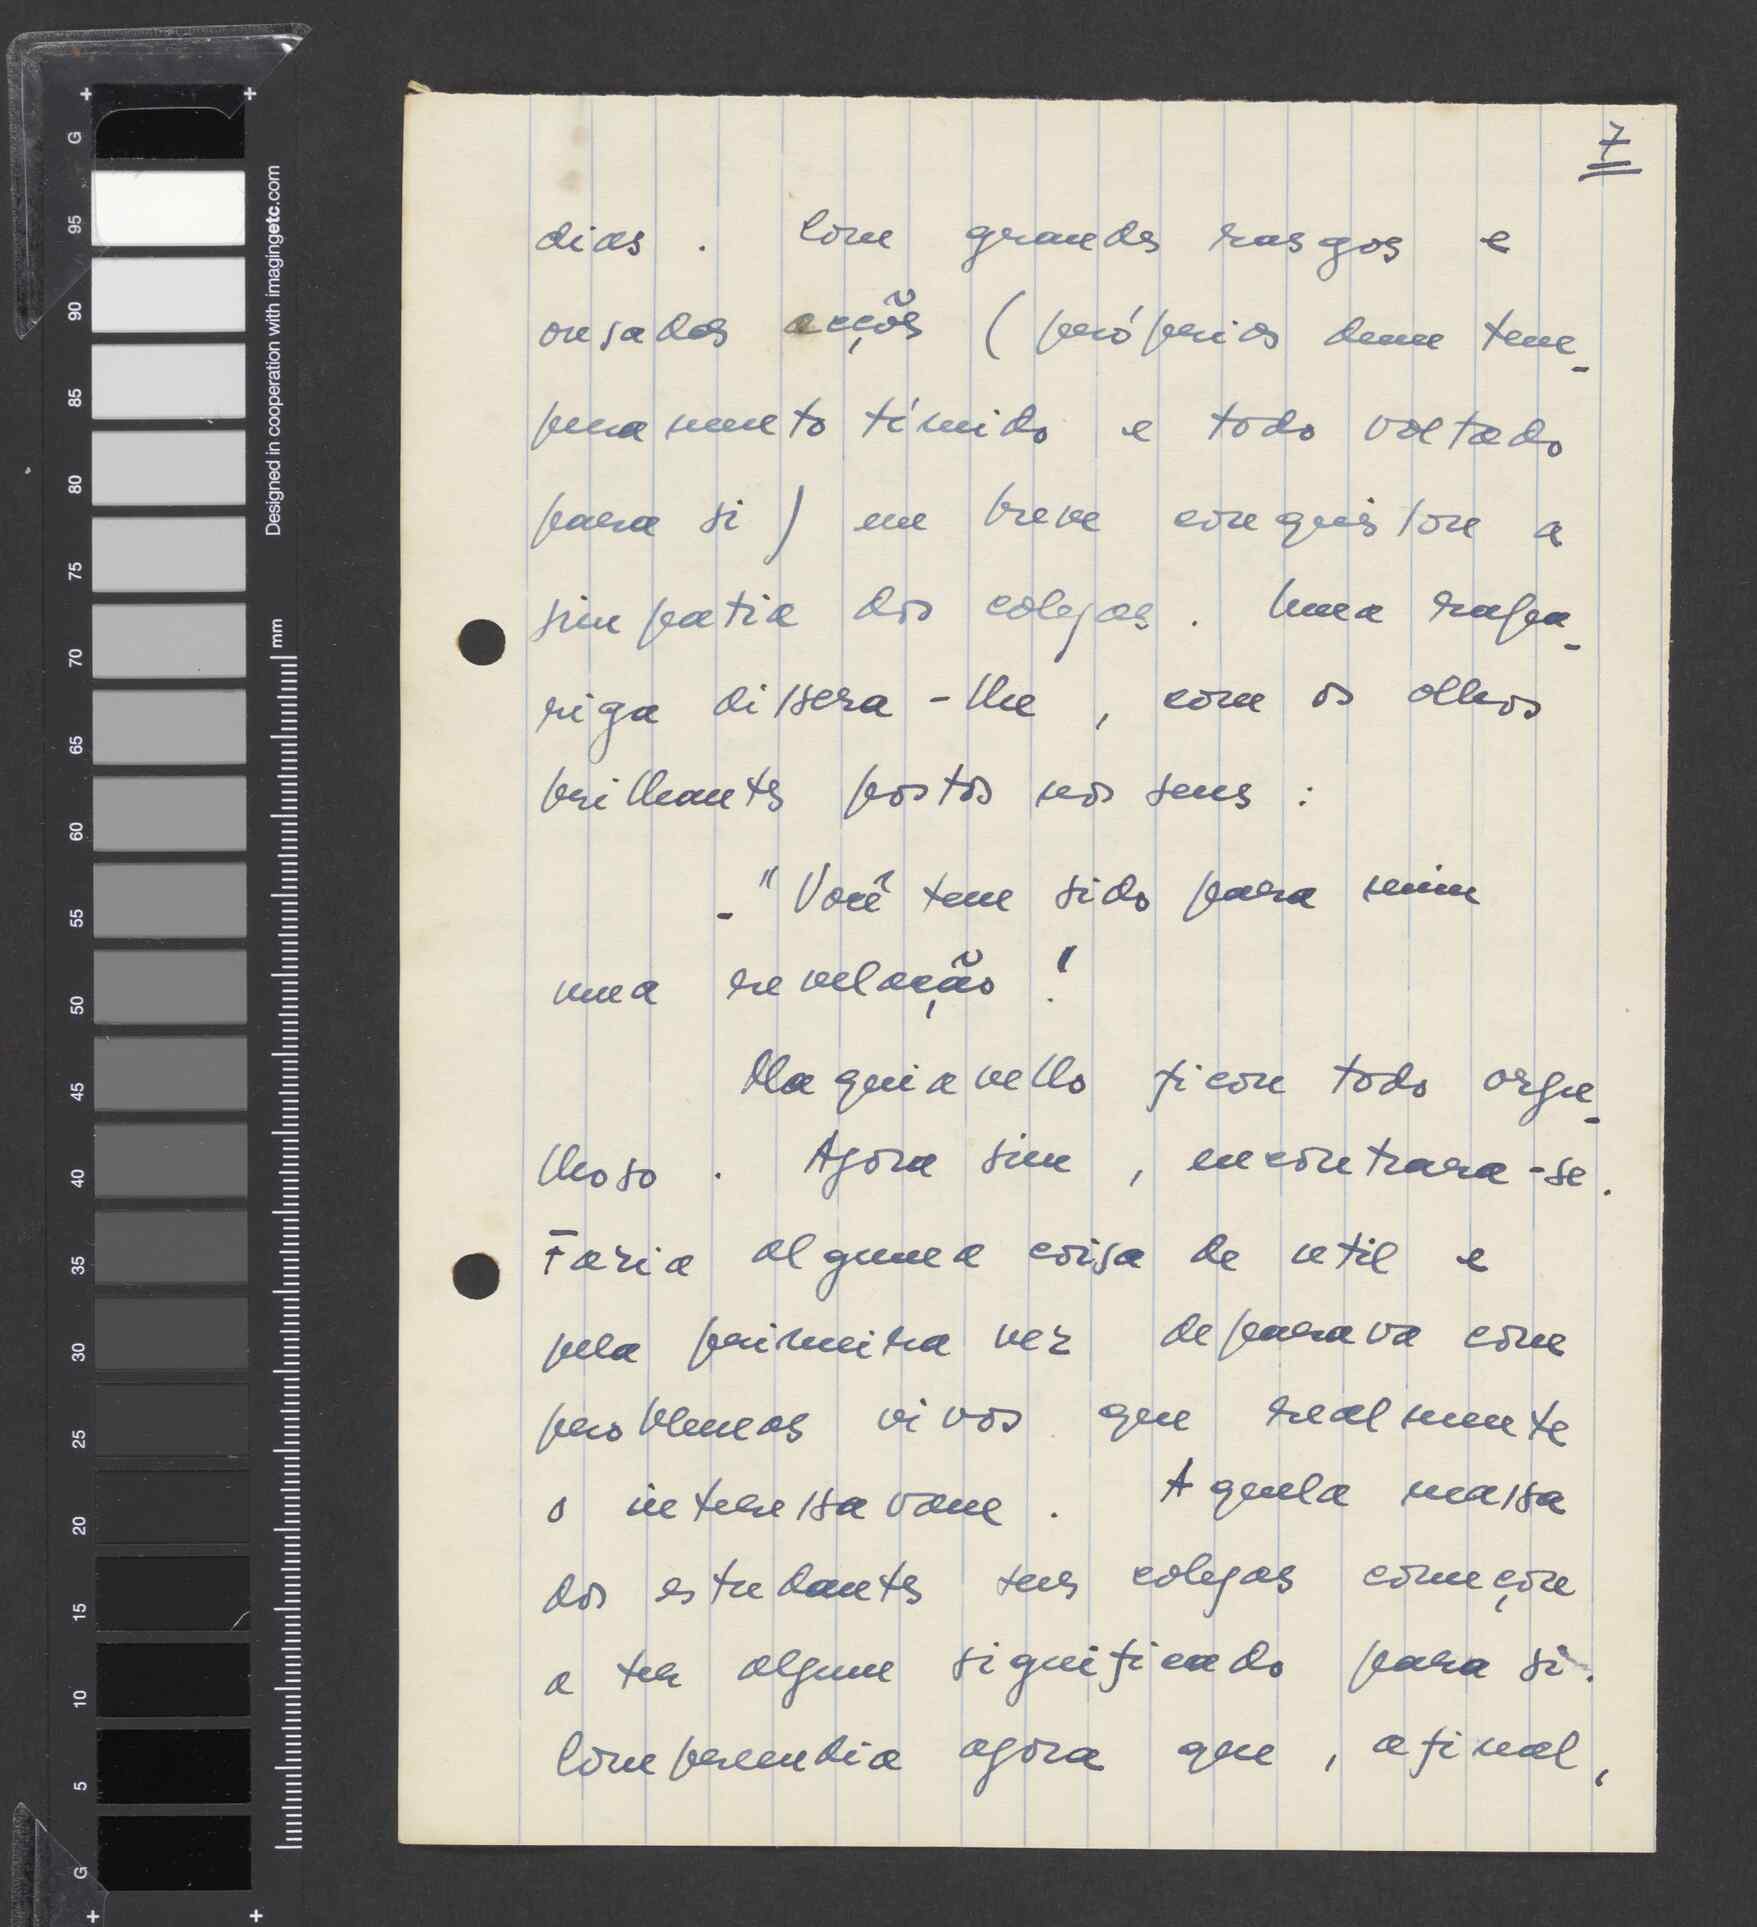 7
dias. Com grandes rasgos e
ousadas acções (próprias dum tem-
peramento tímido e todo voltado
para si) em breve conquistou a
simpatia dos colegas. Uma rapa-
riga dissera-lhe, com os olhos
brilhantes postos nos seus:
-"Você tem sido para mim
uma revelação!
Maquiavello ficou todo orgu-
lhoso. Agora sim, encontrara-se.
Faria alguma coisa de util e
pela primeira vez deparava com
problemas vivos que realmente
o interessavam. Aquela massa
dos estudantes seus colegas começou
a ter algum significado para si.
Compreendia agora que, afinal,
G
95
90
85
80
75
70
65
60
55
50
45
40
35
30
25
20
15
10
5
G
Designed in cooperation with imagingetc.com
mm